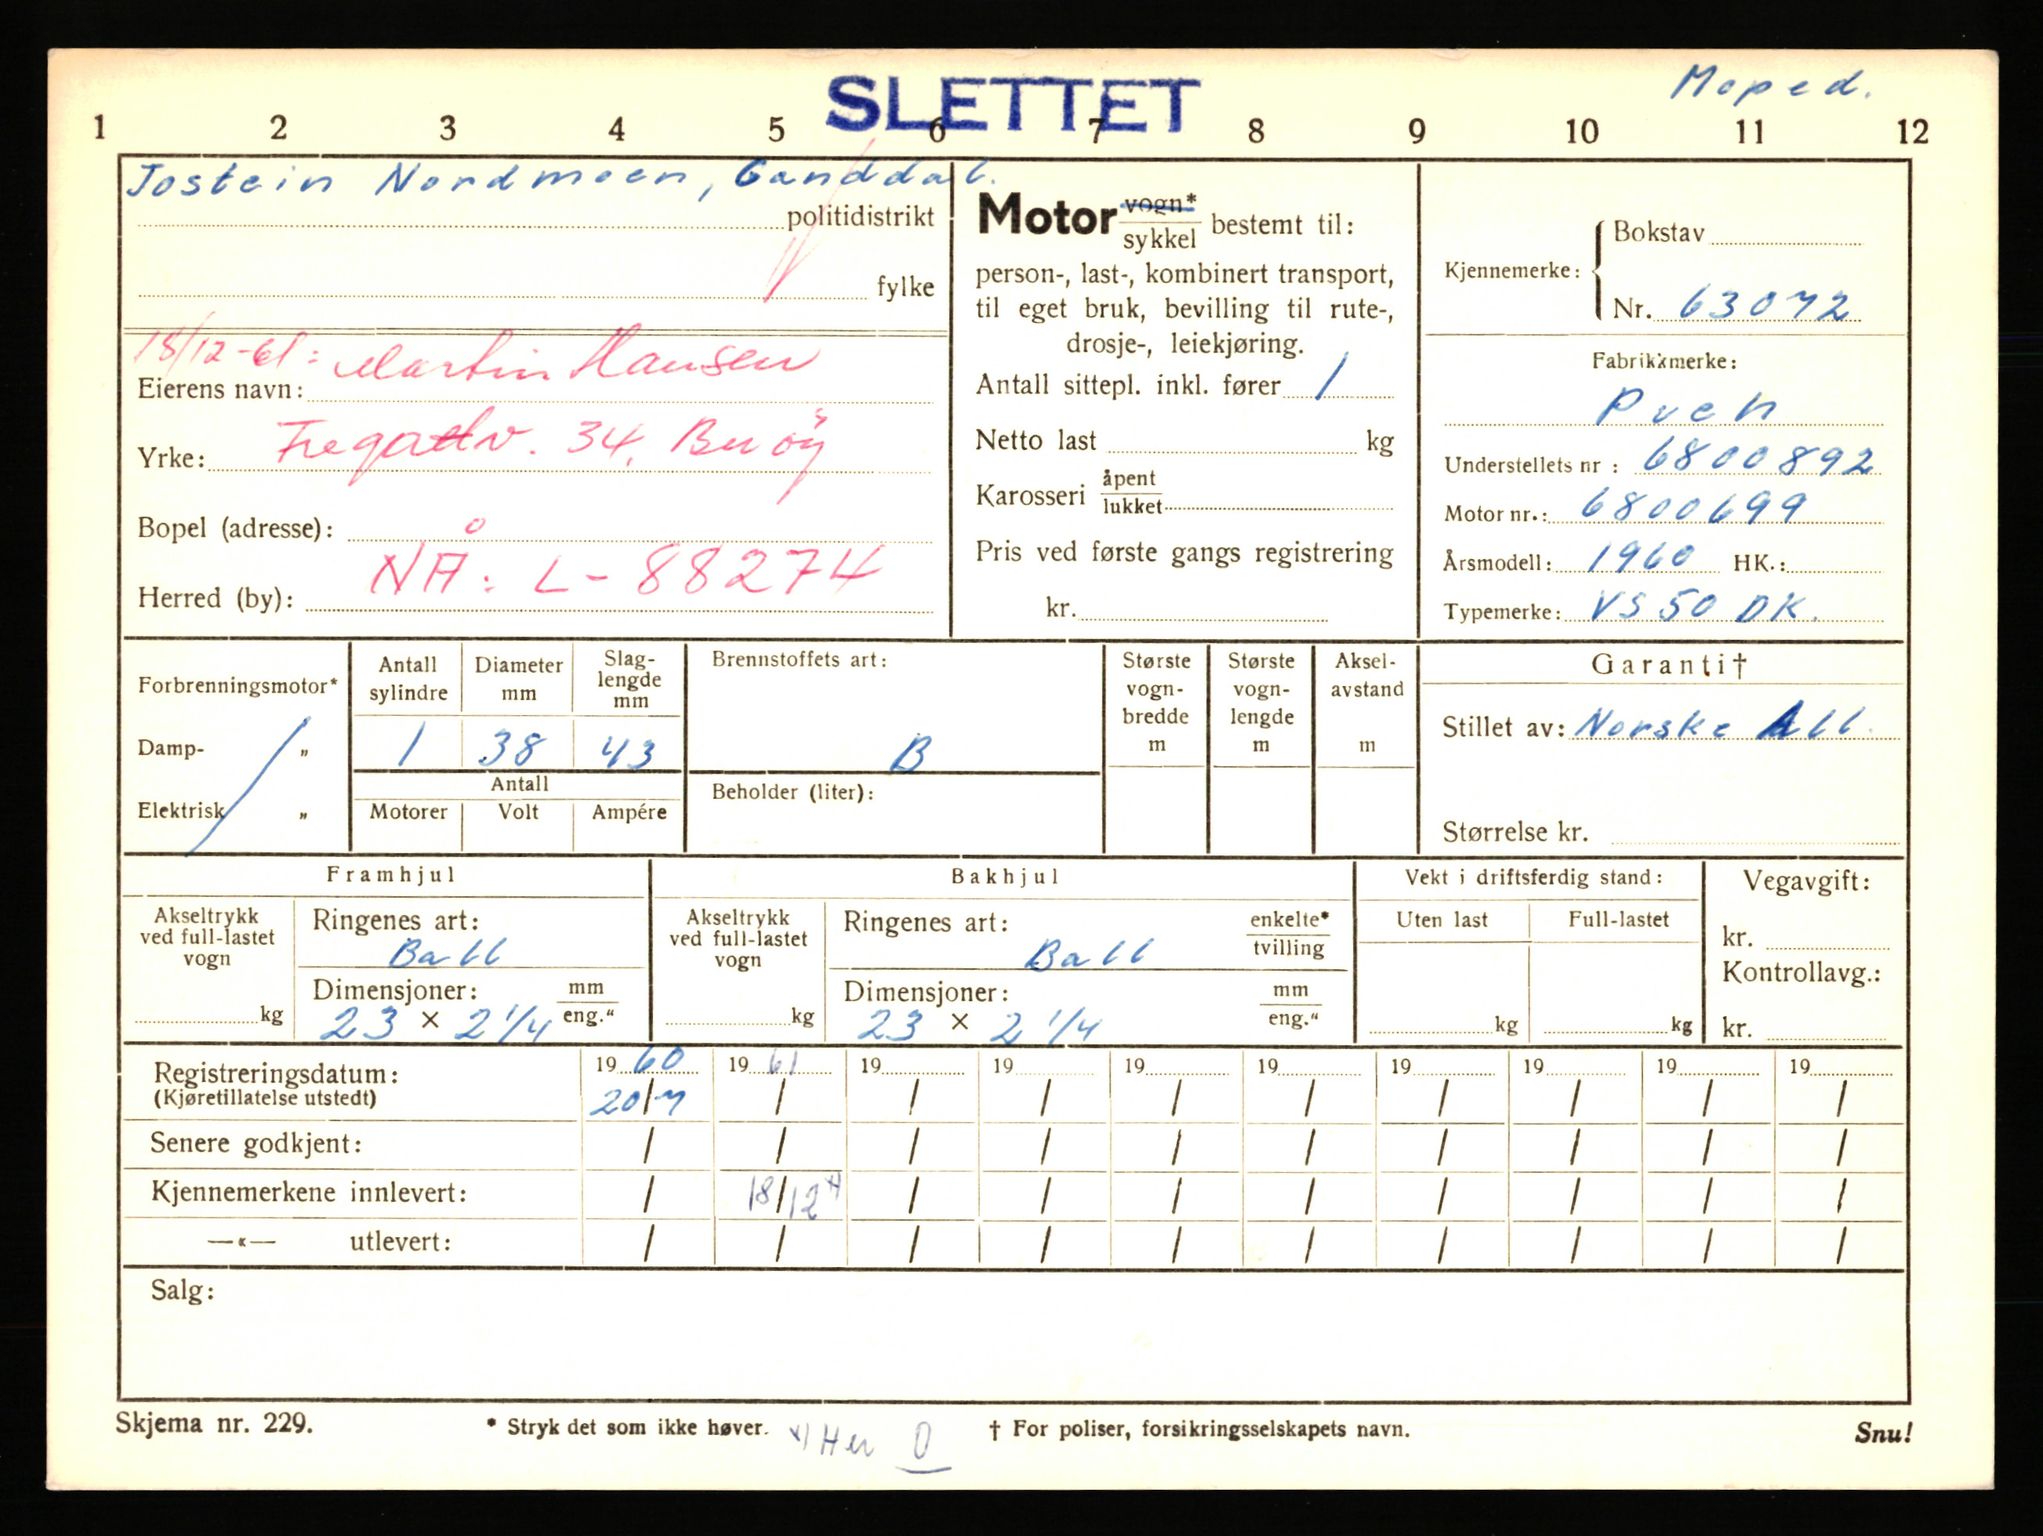 SLETTET
Moped.
1 2 3 4 5 6 7 8 9 10 11 12
Jostein Nordmoen, Ganddal.
politidistrikt
fylke
18/12-61: Martin Hansen
Eierens navn:
Fregattv. 34, Buøy
Yrke:
Bopel (adresse):
NÅ: L-88274
Herred (by):
Motor vogn* sykkel bestemt til:
person-, last-, kombinert transport,
til eget bruk, bevilling til rute-,
drosje-, leiekjøring.
Antall sittepl. inkl. fører 1
Netto last kg
Karosseri åpent lukket
Pris ved første gangs registrering
kr.
Kjennemerke: Bokstav
Nr. 63072
Fabrikkmerke:
Puch
Understellets nr : 6800892
Motor nr.: 6800699
Årsmodell: 1960 HK.:
Typemerke: VS 50 DK.
Forbrenningsmotor*
Damp- „
Elektrisk „
Antall sylindre
Diameter mm
Slag-lengde mm
1 38 43
Antall
Motorer Volt Ampére
Brennstoffets art:
B
Beholder (liter):
Største vogn-bredde m
Største vogn-lengde m
Aksel-avstand m
Garanti†
Stillet av: Norske All.
Størrelse kr.
Framhjul
Akseltrykk ved full-lastet vogn
kg
Ringenes art:
Ball
Dimensjoner: mm eng."
23 x 2 1/4
Bakhjul
Akseltrykk ved full-lastet vogn
kg
Ringenes art: enkelte* tvilling
Ball
Dimensjoner: mm eng."
23 x 2 1/4
Vekt i driftsferdig stand:
Uten last Full-lastet
kg kg
Vegavgift:
kr.
Kontrollavg.:
kr.
Registreringsdatum: 1960 1961 19 19 19 19 19 19 19 19
(Kjøretillatelse utstedt) 20/7 / / / / / / / / /
Senere godkjent: / / / / / / / / / /
Kjennemerkene innlevert: / 18/12 x) / / / / / / / /
—«— utlevert: / / / / / / / / / /
Salg:
Skjema nr. 229.
* Stryk det som ikke høver.
x) Her 0
† For poliser, forsikringsselskapets navn.
Snu!